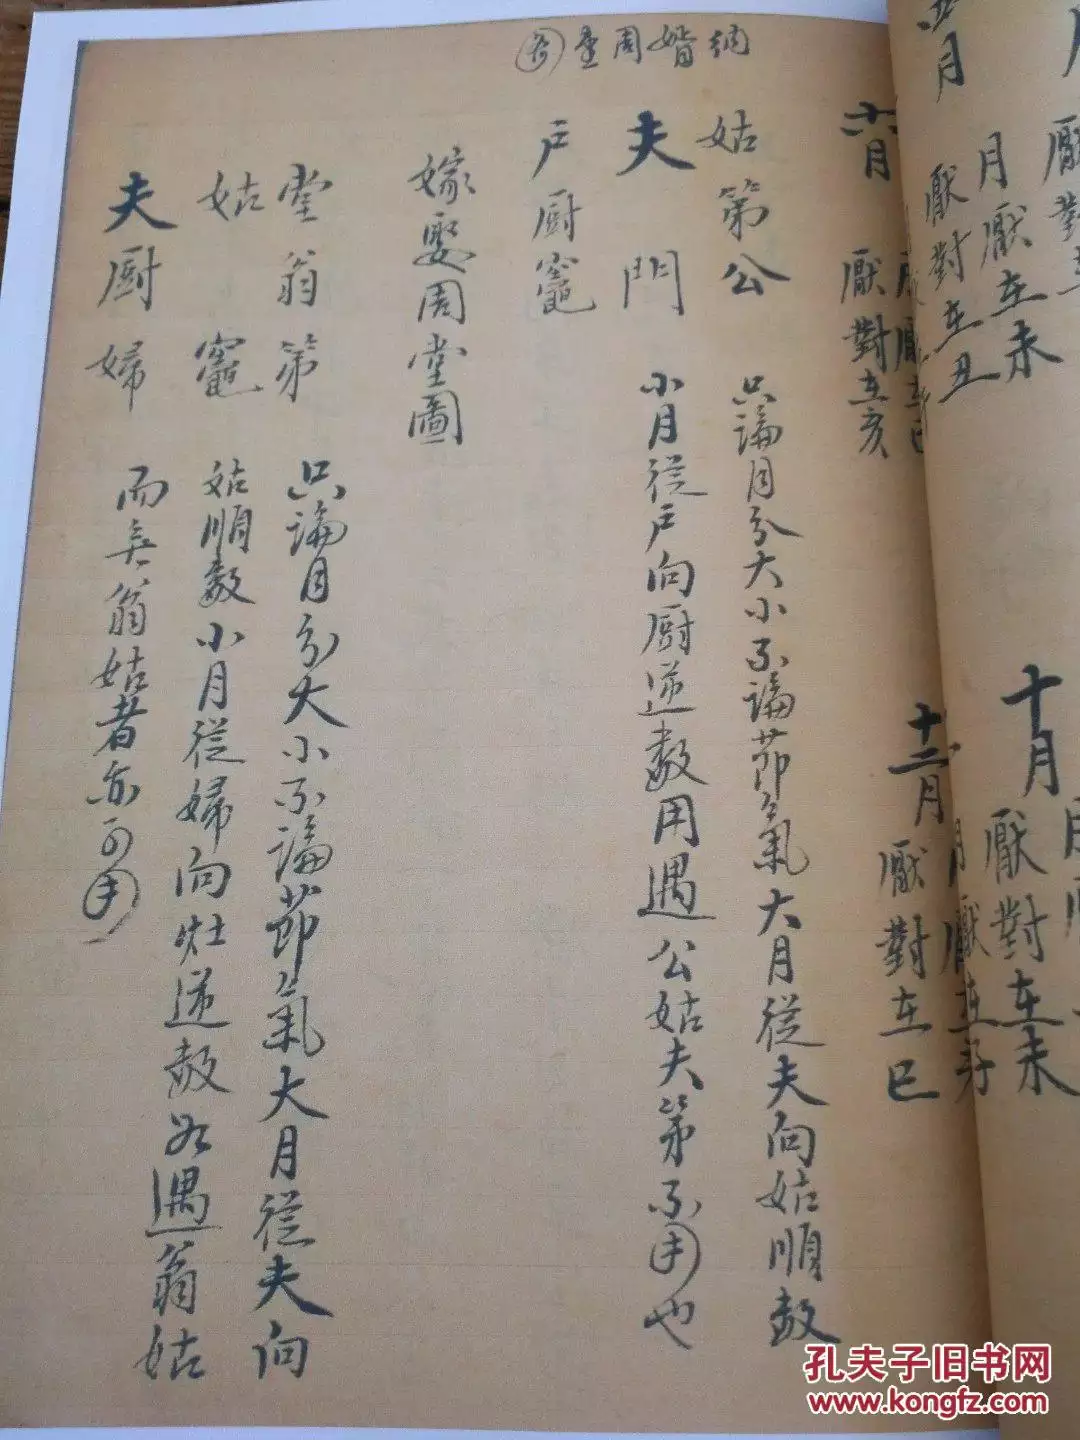 月
厭對
十月
月厭在未
厭對在丑
厭對在未
六月
厭對在亥
十二月
厭對在巳
納婚周堂圖
姑第公
夫門
戶廚竈
只論月分大小不論節氣大月從夫向姑順数
小月從戶向廚逆数用遇公姑夫第不用也
嫁娶周堂圖
堂翁第
姑竈
夫廚婦
只論月分大小不論節氣大月從夫向
姑順数小月從婦向灶逆数若遇翁姑
而無翁姑者亦可用
孔夫子旧书网
www.kongfz.com